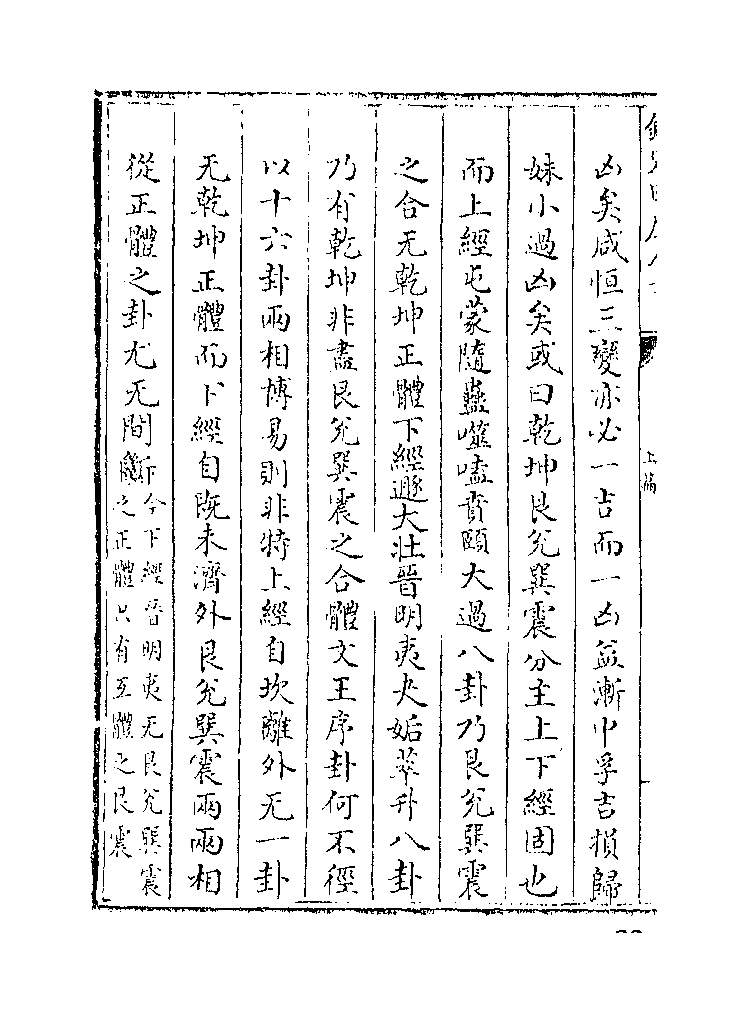 上篇
凶矣咸恒三變亦必一吉而一凶益漸中孚吉損歸
妹小過凶矣或曰乾坤艮兌巽震分主上下經固也
而上經屯蒙隨蠱噬嗑賁頤大過八卦乃艮兌巽震
之合无乾坤正體下經遯大壯晉明夷夬姤萃升八卦
乃有乾坤非盡艮兌巽震之合體文王序卦何不徑
以十六卦兩相博易則非特上經自坎離外无一卦
无乾坤正體而下經自既未濟外艮兌巽震兩兩相
從正體之卦尤无間斷
今下經晉明夷无艮兌巽震
之正體只有互體之艮震